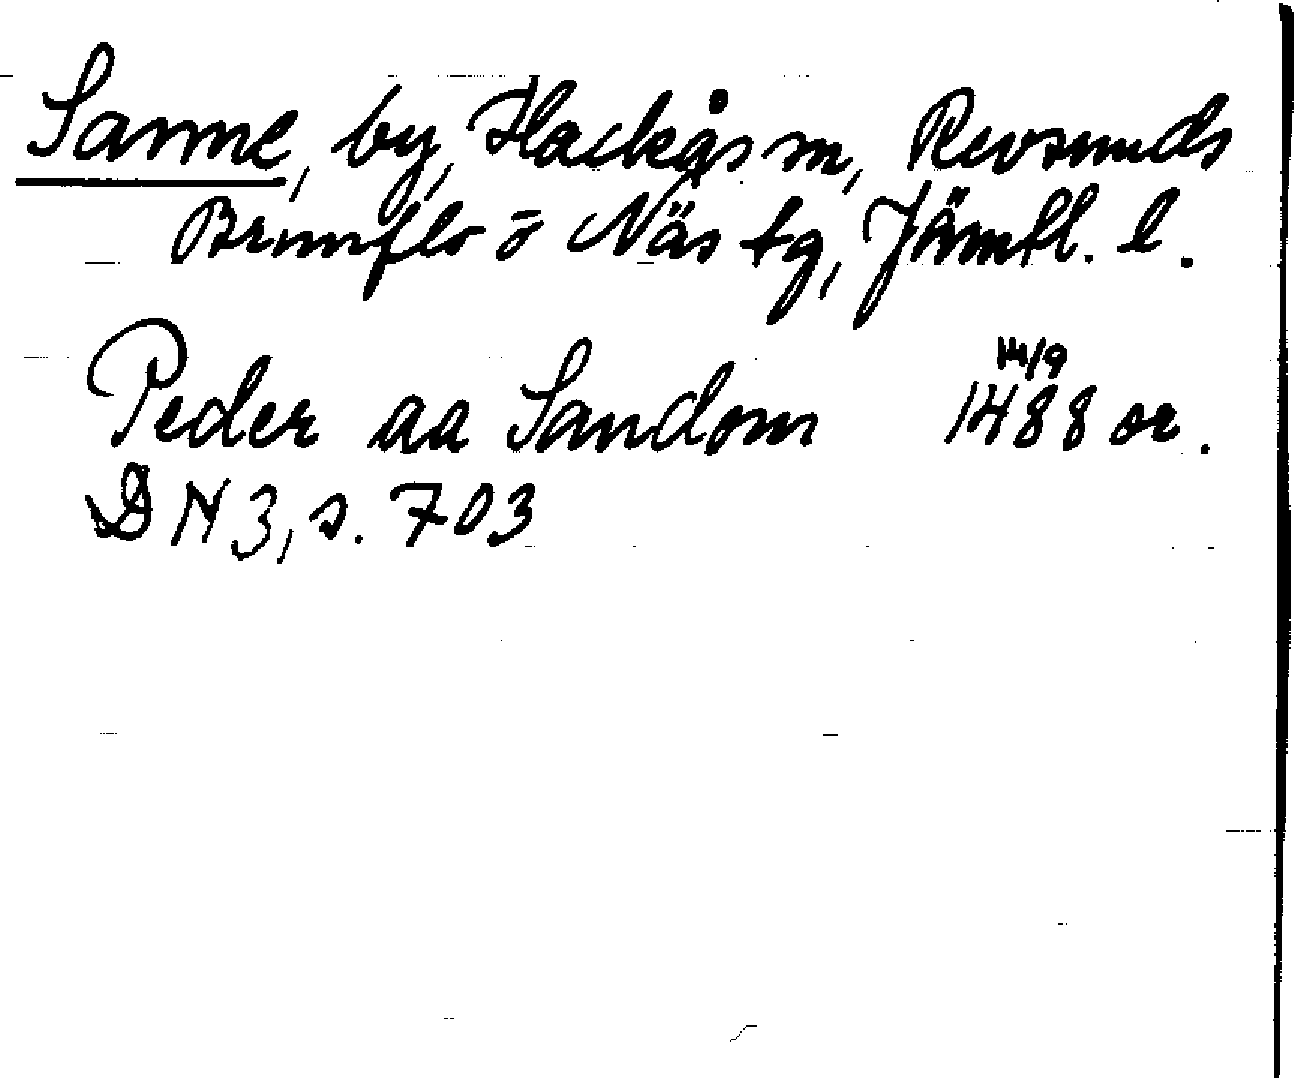 Sanne, by, Hackås sn, Revsunds
Brunflo o Näs tg, Jämtl. l.
Peder aa Sandom 14/9 1488 or.
DN 3, s. 703